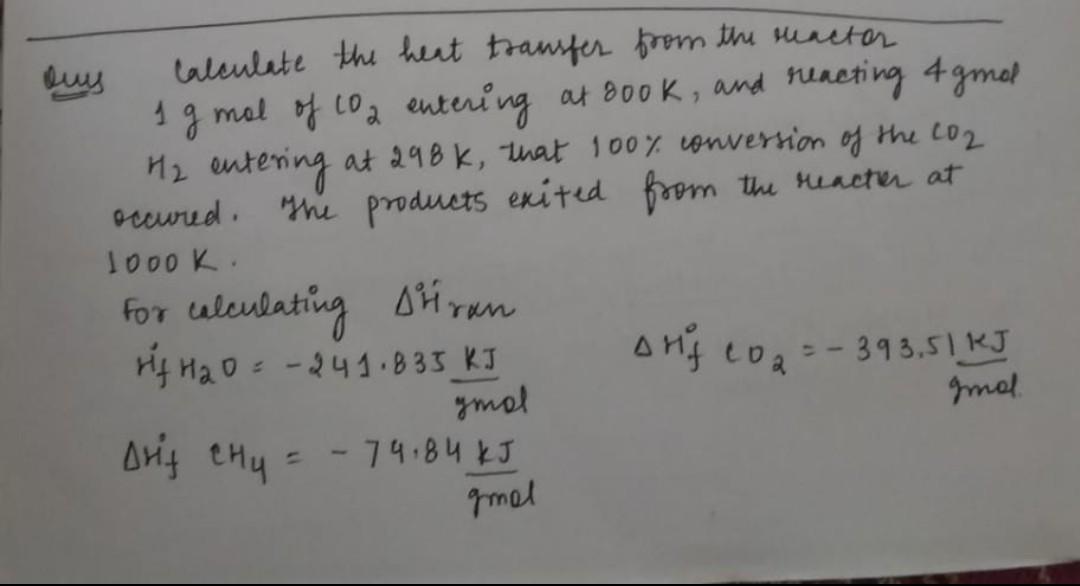 Ques Calculate the heat transfer from the reactor
1 g mol of CO2 entering at 800 K, and reacting 4 gmol
H2 entering at 298 K, that 100% conversion of the CO2
occured. The products exited from the reactor at
1000 K.
For calculating ΔH°rxn
H°f H2O = -241.835 KJ/gmol ΔH°f CO2 = -393.51 KJ/gmol
ΔH°f CH4 = -74.84 kJ/gmol